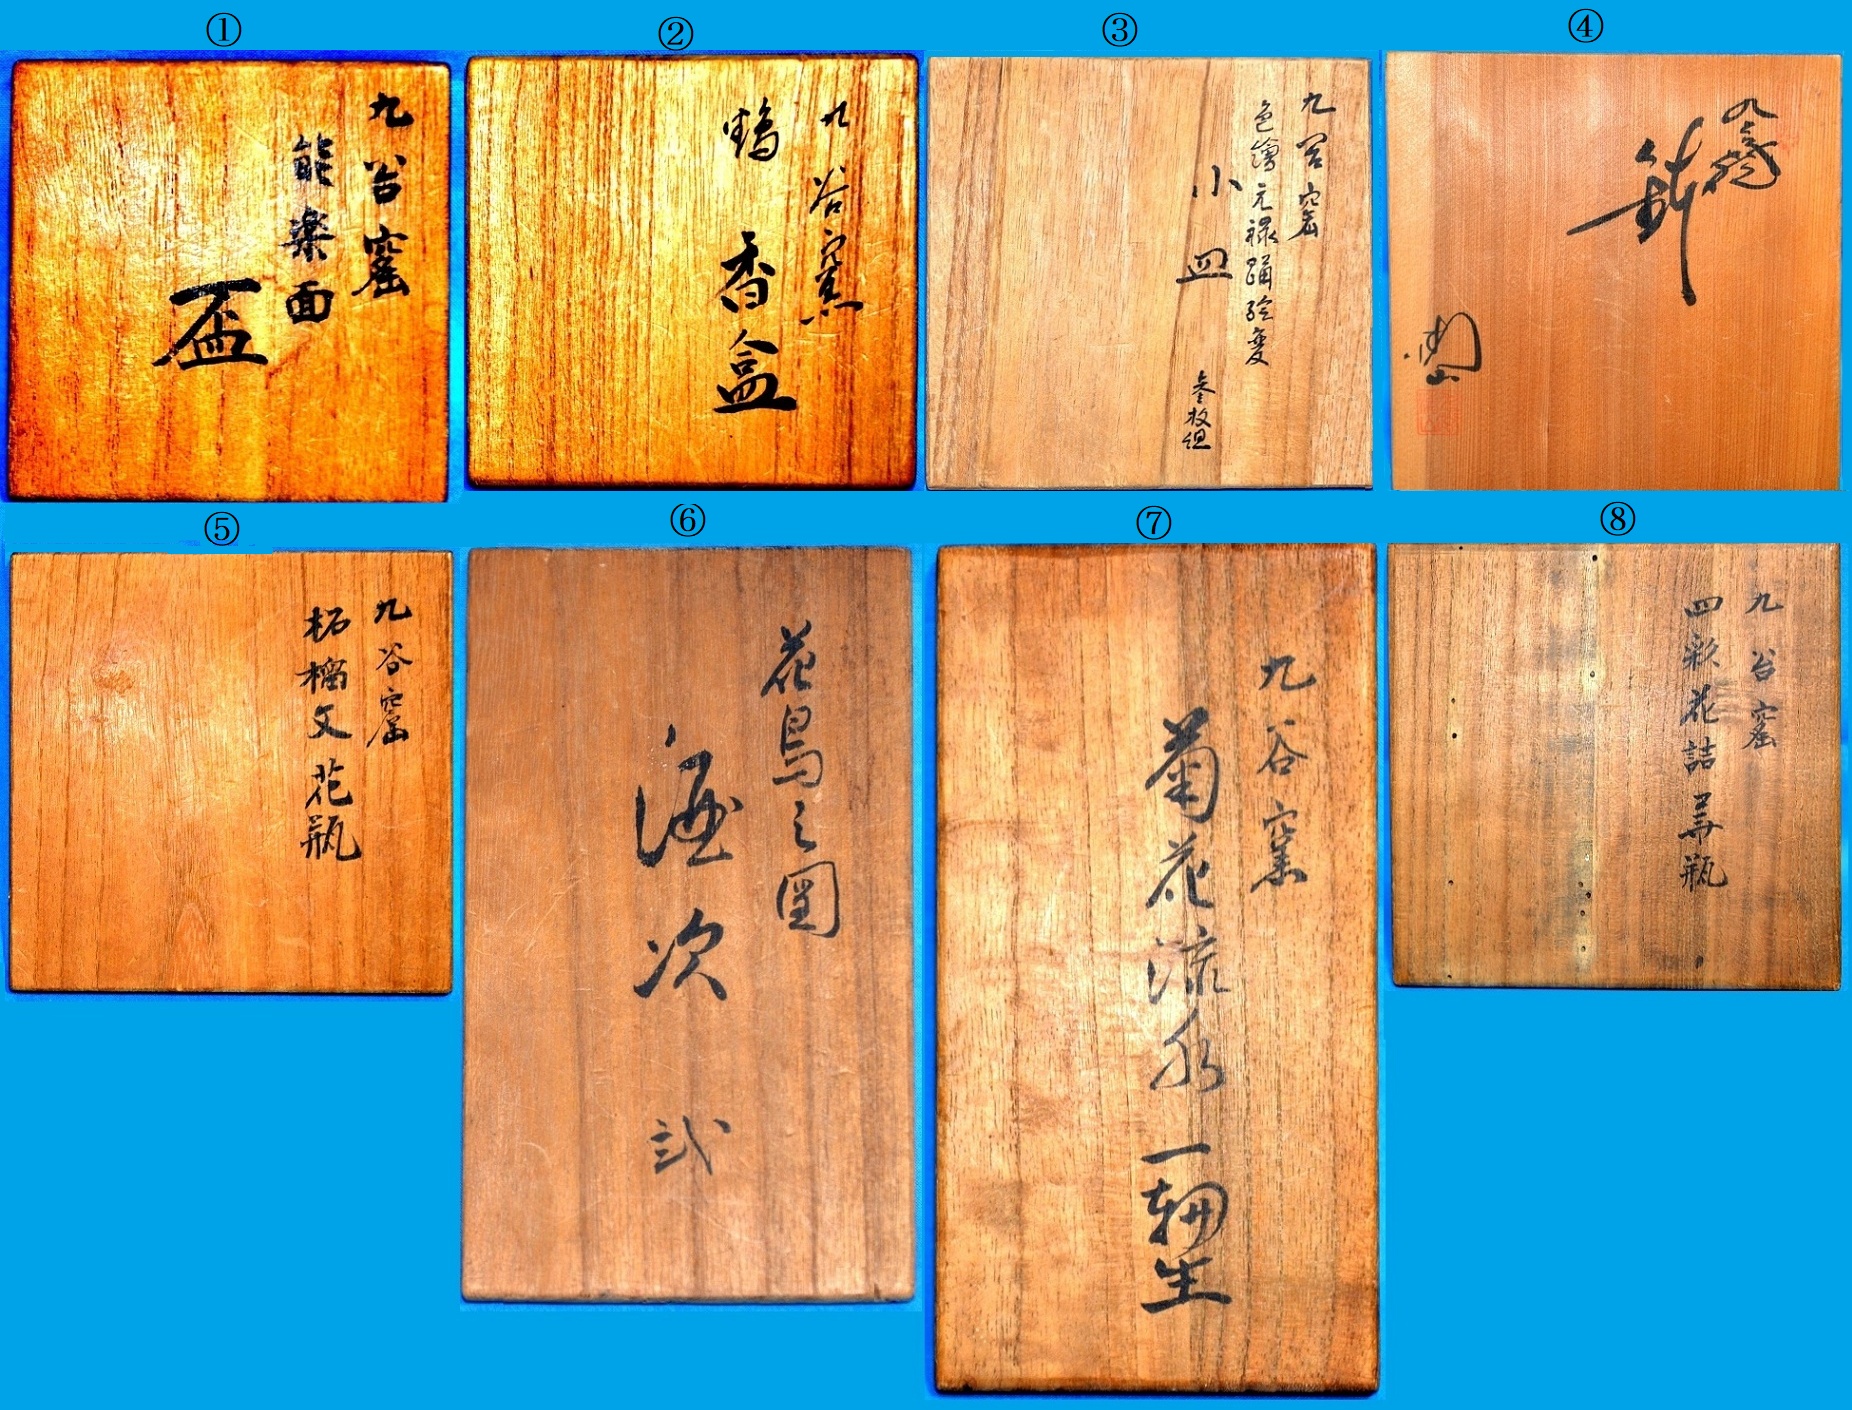 ①
九谷窯
能楽面
盃
②
九谷窯
鶴
香盒
③
九谷窯
色繪元禄踊絵変
小皿
参枚組
④
九谷窯
鉢
⑤
九谷窯
柘榴文花瓶
⑥
花鳥之図
酒次
弐
⑦
九谷窯
菊花流水
一輪生
⑧
九谷窯
四彩花詰花瓶